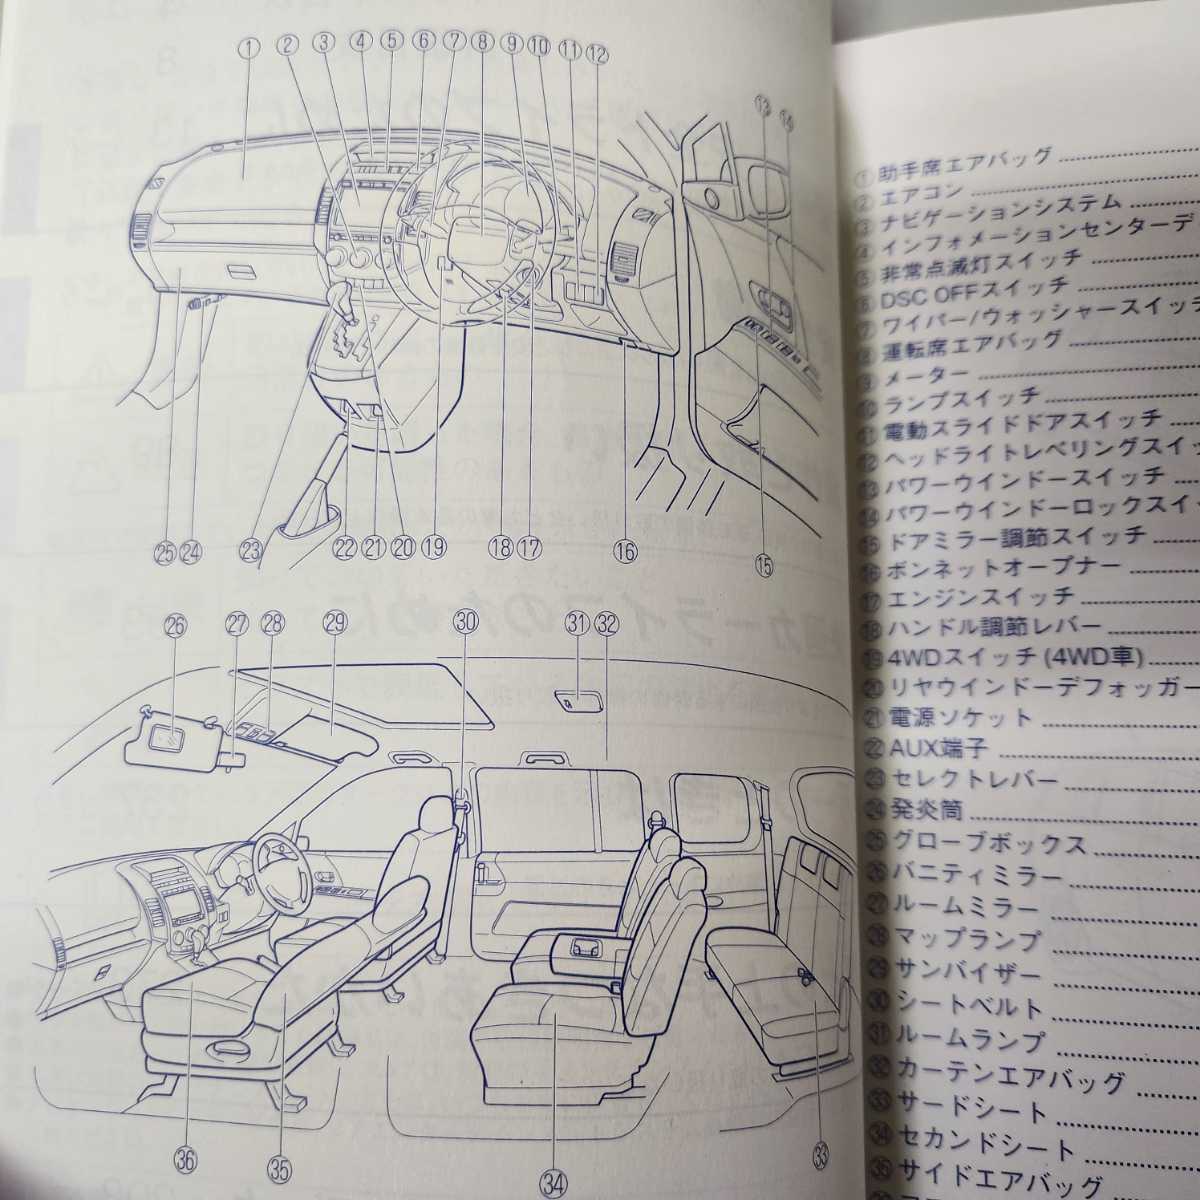 ① ② ③ ④ ⑤ ⑥ ⑦ ⑧ ⑨ ⑩ ⑪ ⑫ ⑬ ⑭
㉕ ㉔ ㉓ ㉒ ㉑ ⑳ ⑲ ⑱ ⑰ ⑯ ⑮
㉖ ㉗ ㉘ ㉙ ㉚ ㉛ ㉜
㊱ ㉟ ㉞ ㉝
①助手席エアバッグ
②エアコン
③ナビゲーションシステム
④インフォメーションセンターデ
⑤非常点滅灯スイッチ
⑥DSC OFFスイッチ
⑦ワイパー/ウォッシャースイッチ
⑧運転席エアバッグ
⑨メーター
⑩ランプスイッチ
⑪電動スライドドアスイッチ
⑫ヘッドライトレベリングスイッ
⑬パワーウインドースイッチ
⑭パワーウインドーロックスイ
⑮ドアミラー調節スイッチ
⑯ボンネットオープナー
⑰エンジンスイッチ
⑱ハンドル調節レバー
⑲4WDスイッチ (4WD車)
⑳リヤウインドーデフォッガー
㉑電源ソケット
㉒AUX端子
㉓セレクトレバー
㉔発炎筒
㉕グローブボックス
㉖バニティミラー
㉗ルームミラー
㉘マップランプ
㉙サンバイザー
㉚シートベルト
㉛ルームランプ
㉜カーテンエアバッグ
㉝サードシート
㉞セカンドシート
㉟サイドエアバッグ